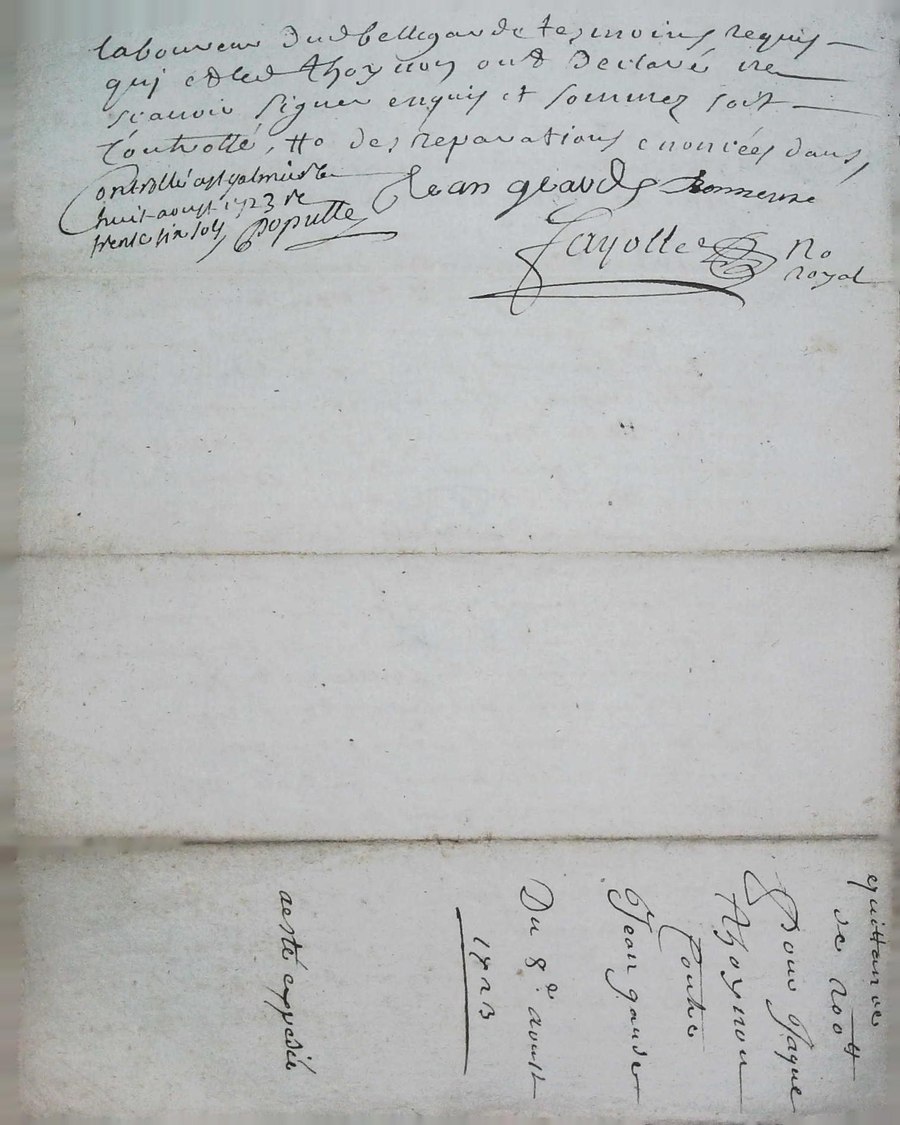 laboureur dud bellegarde tesmoins requis
qui et led thoynon ont declaré ne
scavoir signer enquis et sommez soit
Controllé, tto des reparations enoncées dans
Controllé a st galmier le
huit aoust 1723 re
trente six sols Populle
Jean giaude Bonnevie
Fayolle No
royal
quittance
de 200 tt
Pour Jaque
thoynon
Contre
Jean gaude
Du 8e aoust
1723
a esté expediée